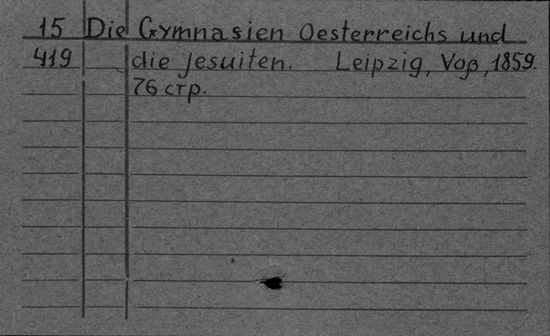 15 Die Gymnasien Oesterreichs und
419 die Jesuiten. Leipzig, Voß, 1859.
76 стр.